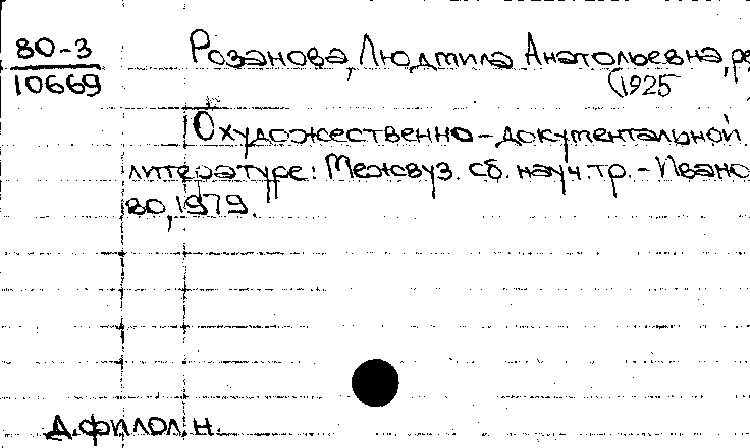 80-3
10669
Розанова, Людмила Анатольевна, ре
(1925
О художественно-документальной
литературе: Межвуз. сб. науч. тр. - Ивано
во, 1979.
Д. филол. н.